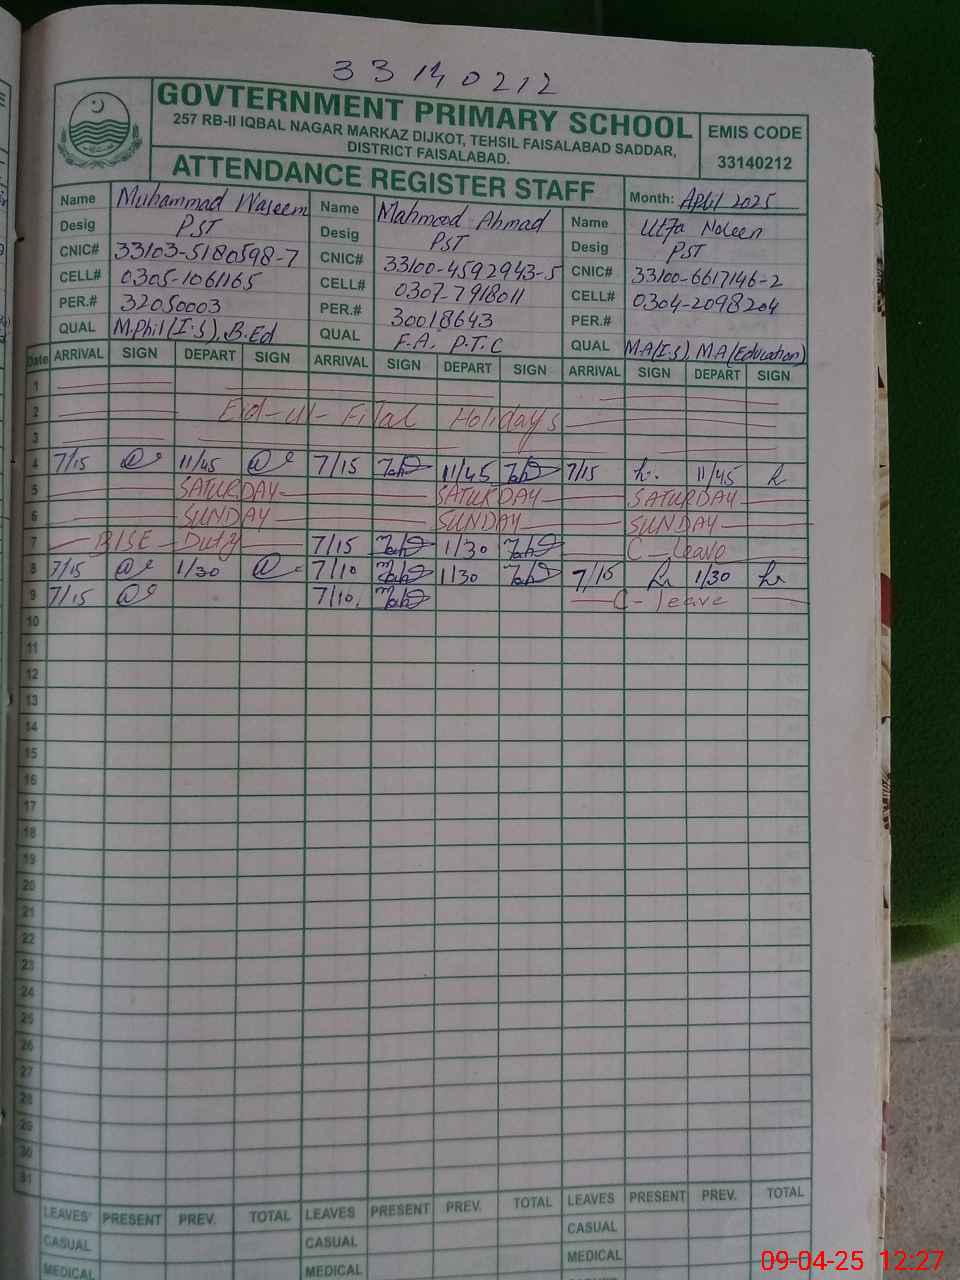 33140212
GOVTERNMENT PRIMARY SCHOOL
257 RB-II IQBAL NAGAR MARKAZ DIJKOT, TEHSIL FAISALABAD SADDAR,
DISTRICT FAISALABAD.
EMIS CODE
33140212
ATTENDANCE REGISTER STAFF
Month: April 2025
Name Muhammad Waseem Name Mahmood Ahmad Name Ulfa Noleen
Desig PST Desig PST Desig PST
CNIC# 33103-5180598-7 CNIC# 33100-4592943-5 CNIC# 33100-6617146-2
CELL# 0305-1061165 CELL# 0307-7918011 CELL# 0304-2098204
PER.# 32050003 PER.# 30018643 PER.#
QUAL M.Phil(I.S), B.Ed QUAL F.A, P.T.C QUAL M.A(I.S), M.A(Education)
Date ARRIVAL SIGN DEPART SIGN ARRIVAL SIGN DEPART SIGN ARRIVAL SIGN DEPART SIGN
1
2 Eid-ul-Fital Holidays
3
4 7/15 11/45 7/15 11/45 7/15 11/45
5 SATURDAY SATURDAY SATURDAY
6 SUNDAY SUNDAY SUNDAY
7 BISE - Duty 7/15 1/30 C-leave
8 7/15 1/30 7/10 1/30 7/15 1/30
9 7/15 7/10 C-leave
10
11
12
13
14
15
16
17
18
19
20
21
22
23
24
25
26
27
28
29
30
31
LEAVES PRESENT PREV. TOTAL LEAVES PRESENT PREV. TOTAL LEAVES PRESENT PREV. TOTAL
CASUAL CASUAL CASUAL
MEDICAL MEDICAL MEDICAL
09-04-25 12:27